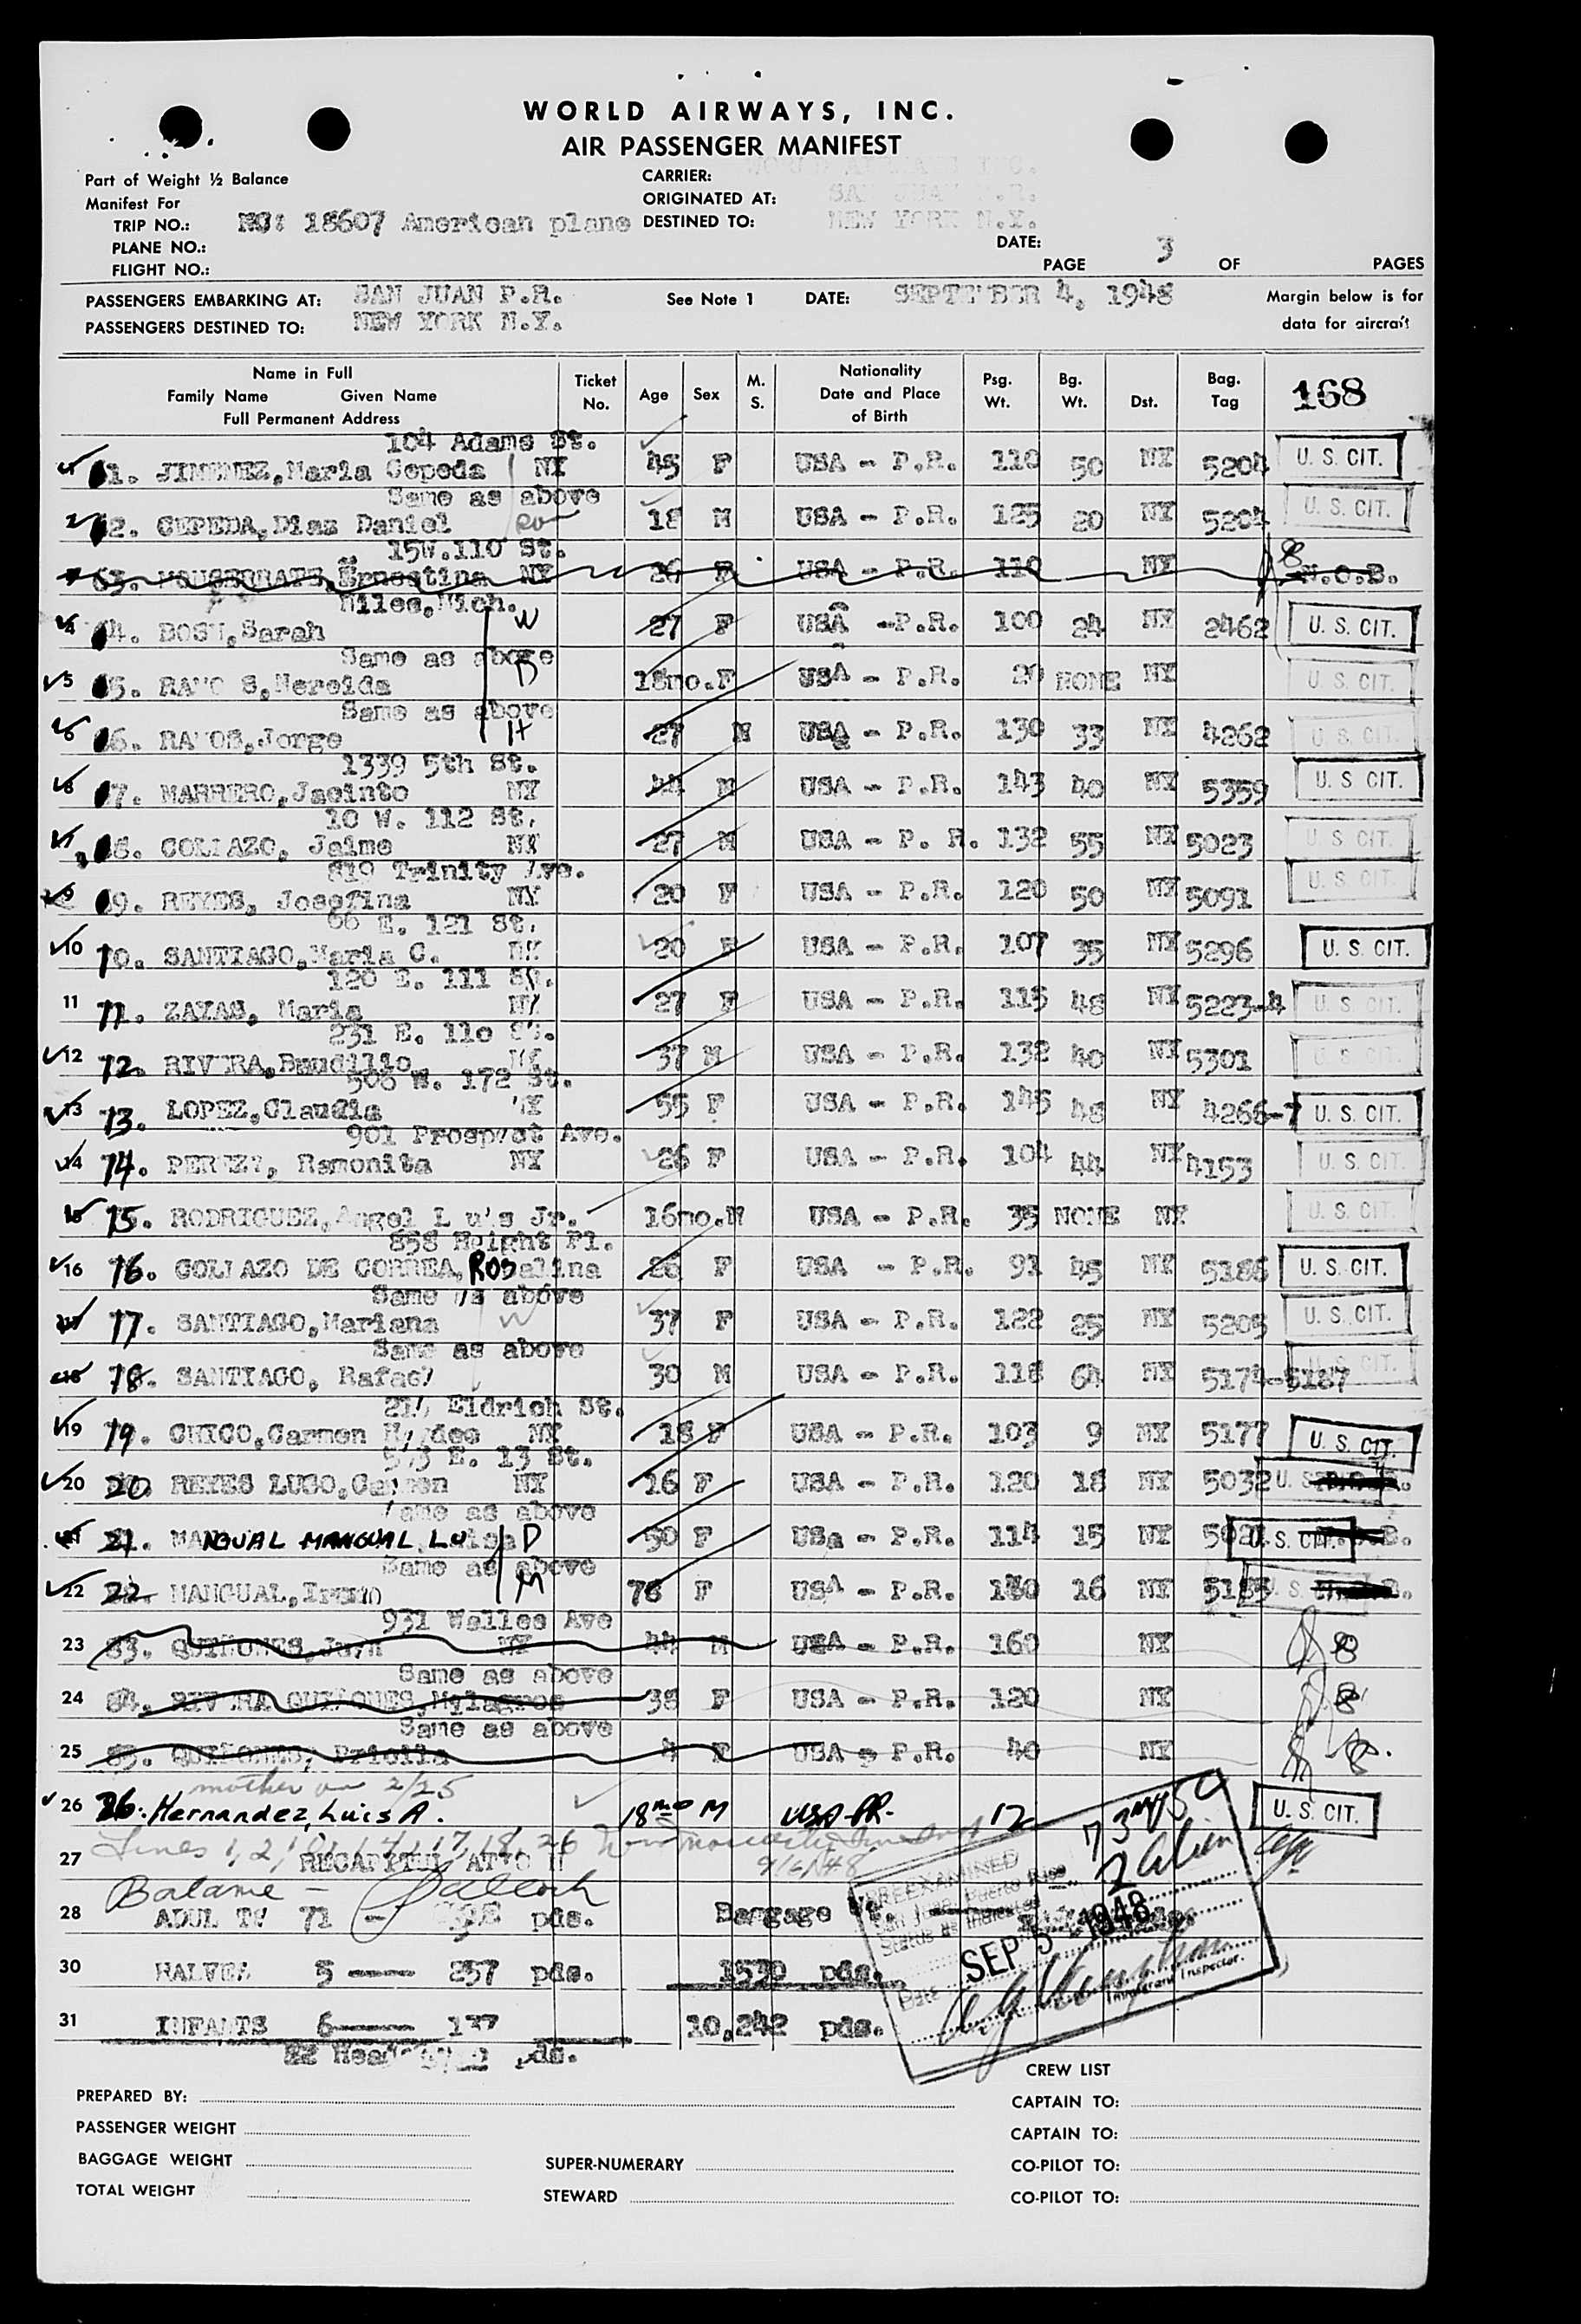 WORLD AIRWAYS, INC.
AIR PASSENGER MANIFEST
Part of Weight ½ Balance
Manifest For
CARRIER: WORLD AIRWAYS INC.
ORIGINATED AT: SAN JUAN P.R.
TRIP NO.: NO: 18607 American plane DESTINED TO: NEW YORK N.Y.
PLANE NO.:
DATE:
FLIGHT NO.:
PAGE 3 OF PAGES
PASSENGERS EMBARKING AT: SAN JUAN P.R. See Note 1 DATE: SEPTEMBER 4, 1948 Margin below is for
PASSENGERS DESTINED TO: NEW YORK N.Y. data for aircraft
Name in Full
Family Name Given Name
Full Permanent Address
Ticket No. Age Sex M. S. Nationality Date and Place of Birth Psg. Wt. Bg. Wt. Dst. Bag. Tag 168
104 Adams St.
1. JIMENEZ, Maria Cepeda NY 45 F USA - P.R. 110 50 NY 5204 U. S. CIT.
Same as above
2 2. CEPEDA, Dias Daniel 18 M USA - P.R. 125 20 NY 5204 U. S. CIT.
15W.110 St.
63. Ernestina NY 26 F USA - P.R. 110 NY N.O.B.
Niles, Mich.
4 4. BOSH, Sarah W 27 F USA -P.R. 100 24 NY 2462 U. S. CIT.
Same as above
5 5. RAMOS, Nereida D 18mo. F USA - P.R. 20 NONE NY U. S. CIT.
Same as above
6 6. RAMOS, Jorge H 27 M USA - P.R. 130 33 NY 4262 U. S. CIT.
1339 5th St.
8 7. MARRERO, Jacinto NY 44 M USA - P.R. 143 40 NY 5359 U. S. CIT.
10 W. 112 St.
8. COLLAZO, Jaime NY 27 M USA - P. R. 132 55 NY 5023 U. S. CIT.
819 Trinity Ave.
9 9. REYES, Josefina NY 20 F USA - P.R. 120 50 NY 5091 U. S. CIT.
66 E. 121 St.
10 70. SANTIAGO, Maria C. NY 20 F USA - P.R. 107 35 NY 5296 U. S. CIT.
120 E. 111 St.
11 71. ZAYAS, Maria NY 27 F USA - P.R. 115 48 NY 5223-4 U. S. CIT.
231 E. 110 St.
12 72. RIVERA, Baudilio NY 37 M USA - P.R. 132 40 NY 5301 U. S. CIT.
506 W. 172 St.
13 73. LOPEZ, Claudia NY 55 F USA - P.R. 145 48 NY 4266-7 U. S. CIT.
901 Prospect Ave.
14 74. PEREZ, Ramonita NY 26 F USA - P.R. 104 44 NY 4153 U. S. CIT.
15 75. RODRIGUEZ, Angel Luis Jr. 16mo. M USA - P.R. 35 NONE NY U. S. CIT.
858 Height Pl.
16 76. COLLAZO DE CORREA, Rosalina 26 F USA - P.R. 91 45 NY 5186 U. S. CIT.
Same as above
77. SANTIAGO, Mariana W 37 F USA - P.R. 122 25 NY 5205 U. S. CIT.
Same as above
18 78. SANTIAGO, Rafael 30 M USA - P.R. 118 64 NY 5174-5187 U. S. CIT.
Eldrich St.
19 79. CHICO, Carmen Haydee NY 18 F USA - P.R. 103 9 NY 5177 U. S. CIT.
513 E. 13 St.
20 20. REYES LUGO, Carmen NY 16 F USA - P.R. 120 18 NY 5032 U. S.
Same as above
21 21. MANGUAL MANGUAL, Luisa D 50 F USA - P.R. 114 15 NY U. S. CIT.
Same as above
22 22. MANGUAL, M 78 F USA - P.R. 130 16 NY 5185 U. S.
931 Walles Ave
23 83. QUIÑONES, Juan NY 44 M USA - P.R. 160 NY 8
Same as above
24 84. RIVERA QUIÑONES, Milagros 38 F USA - P.R. 120 NY 8
Same as above
25 85. QUIÑONES, 4 F USA - P.R. 40 NY 8
mother on 2/25
26 26. Hernandez, Luis A. 18 mo M USA-PR. 12 U. S. CIT.
Lines 1, 2, 10, 14, 17, 18, 26
27 RECAPITULATION 9/6/48
Balance —
28 ADULTS 71 — pds. Baggage
30 HALVES 5 ---- 257 pds. 1530 pds.
31 INFANTS 6---- 137 10,242 pds.
82 Heads pds.
PREEXAMINED
San Juan, Puerto Rico
Status as Indicated
73
2 alien
Date SEP 5 1948
Immigrant Inspector.
CREW LIST
PREPARED BY: CAPTAIN TO:
PASSENGER WEIGHT CAPTAIN TO:
BAGGAGE WEIGHT SUPER-NUMERARY CO-PILOT TO:
TOTAL WEIGHT STEWARD CO-PILOT TO: